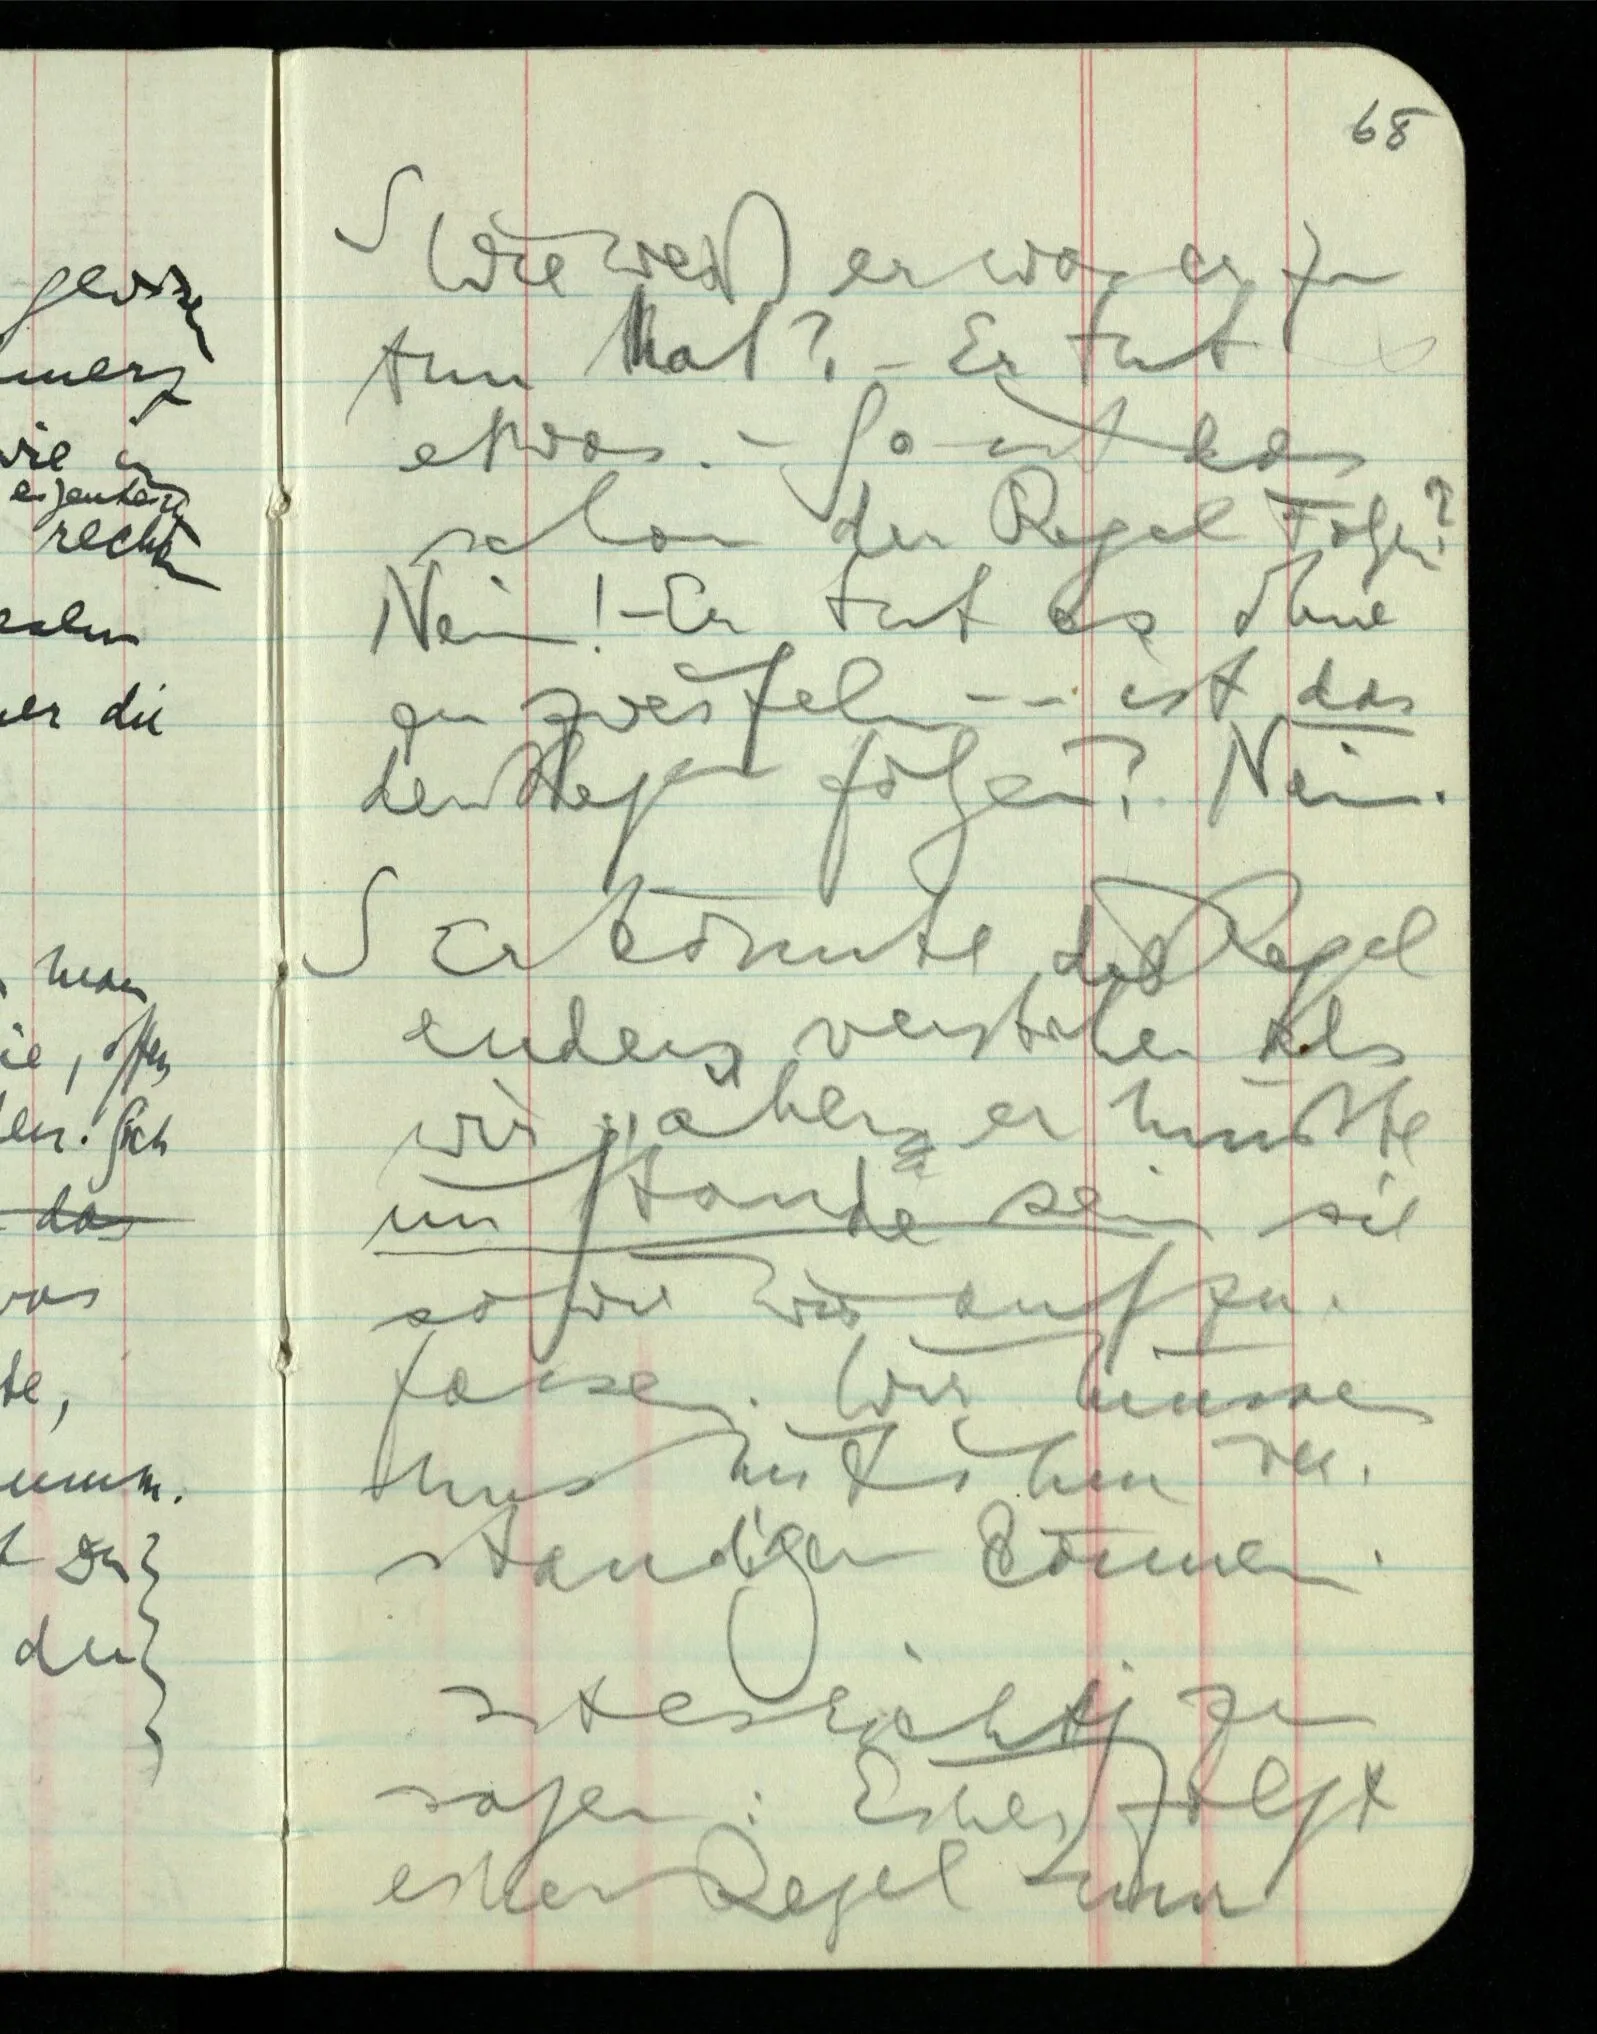 gewissen
merz
wie in
eigentlich
recht
er die
man
ie, offen
len. Sich
das
was
te,
numm.
du
68
S Wie weiß er was er zu
tun hat? – Er tut
etwas. – So ist das
schon der Regel Folgen?
Nein! – Er tut es ohne
zu zweifeln -- ist das
den Regeln folgen? Nein.
S Er könnte die Regel
anders verstehen als
wir, aber er müßte
im Stande sein sie
so wie wir aufzu-
fassen. Wir müssen
uns mit ihm ver-
ständigen können.
Ist es richtig zu
sagen: Einer folgt
einer Regel wenn